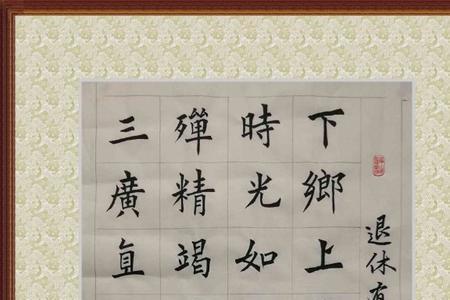 退休有
下鄉上
時光如
殫精竭
三廣直